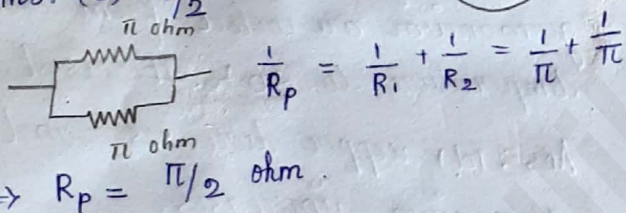 π/2
π ohm
1/Rp = 1/R1 + 1/R2 = 1/π + 1/π
π ohm
⇒ Rp = π/2 ohm.